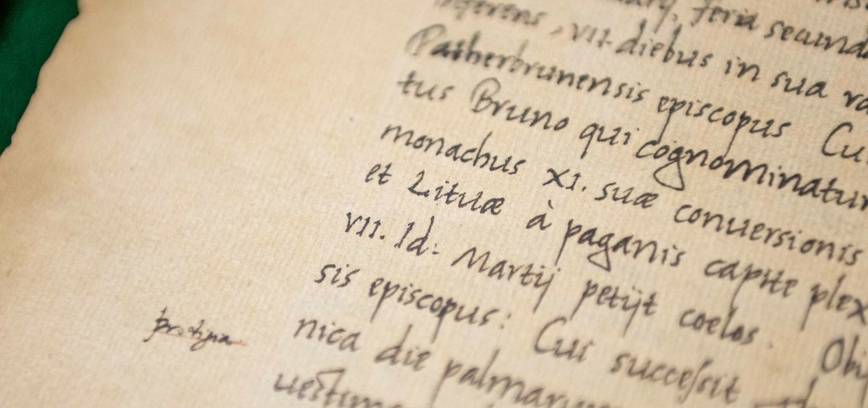 feria secund
vii. diebus in sua
Patherbrunensis episcopus Cu
tus Bruno qui cognominatur
monachus XI. suæ conuersionis
et Lituæ à paganis capite plex
vii. Id: Martij petijt coelos. Obi
sis episcopus: Cui successit
nica die palmarum